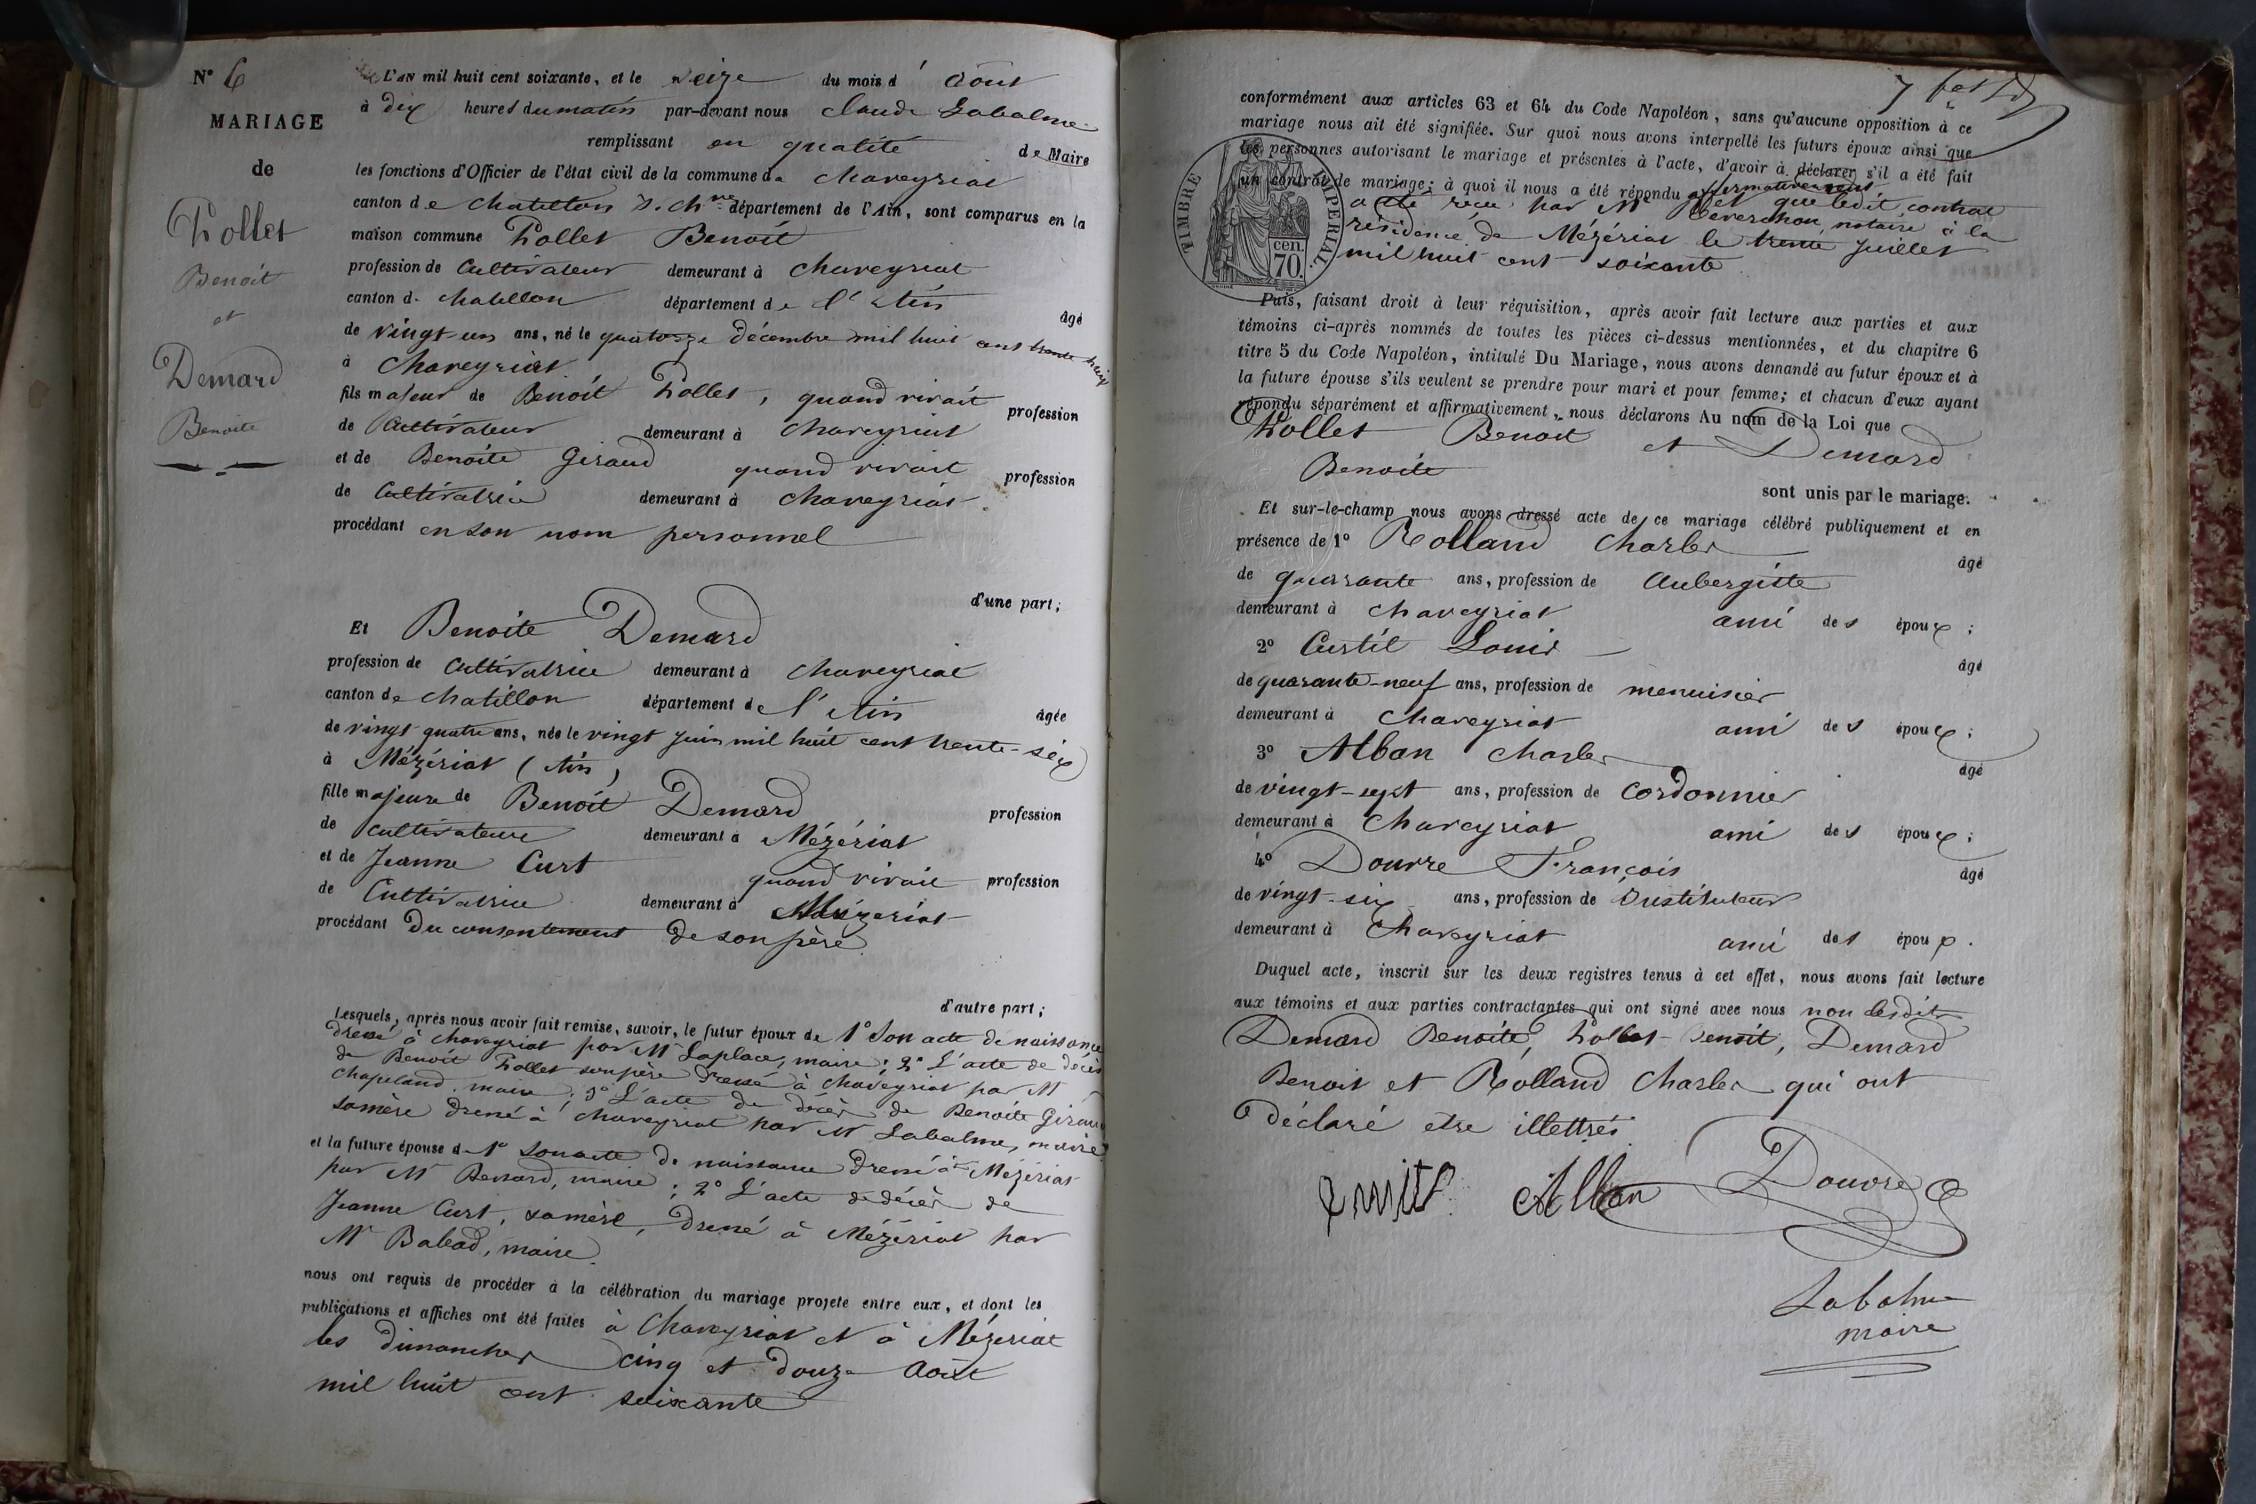 N° 6
MARIAGE
de
Pollet
Benoit
et
Demard
Benoite
L'AN mil huit cent soixante, et le seize du mois d'août
à dix heures du matin par-devant nous Claude Labalme
remplissant en qualité de Maire
les fonctions d'Officier de l'état civil de la commune de Chaveyriat
canton de Chatillon s. Ch.ne département de l'Ain, sont comparus en la
maison commune Pollet Benoit
profession de Cultivateur demeurant à Chaveyriat
canton de Chatillon département de l'Ain âgé
de vingt-un ans, né le quatorze décembre mil huit cent trente huit
à Chaveyriat
fils majeur de Benoit Pollet, quand vivait profession
de Cultivateur demeurant à Chaveyriat
et de Benoite Giraud quand vivait profession
de Cultivatrice demeurant à Chaveyriat
procédant en son nom personnel
d'une part;
Et Benoite Demard
profession de Cultivatrice demeurant à Chaveyriat
canton de Chatillon département de l'Ain âgée
de vingt quatre ans, née le vingt juin mil huit cent trente-six
à Mézériat (Ain)
fille majeure de Benoit Demard profession
de cultivateur demeurant à Mézériat
et de Jeanne Curt quand vivait profession
de Cultivatrice demeurant à Mézériat
procédant du consentement de son père
d'autre part;
Lesquels, après nous avoir fait remise, savoir, le futur époux de 1° Son acte de naissance
dressé à Chaveyriat par Mr Laplace, maire; 2° L'acte de décès
de Benoit Pollet son père dressé à Chaveyriat par Mr
Chapeland, maire; 3° L'acte de décès de Benoite Giraud
sa mère dressé à Chaveyriat par Mr Labalme, maire
et la future épouse de 1° Son acte de naissance dressé à Mézériat
par Mr Bernard, maire; 2° L'acte de décès de
Jeanne Curt, sa mère, dressé à Mézériat par
Mr Babad, maire
nous ont requis de procéder à la célébration du mariage projeté entre eux, et dont les
publications et affiches ont été faites à Chaveyriat et à Mézériat
les dimanches cinq et douze Août
mil huit cent soixante
conformément aux articles 63 et 64 du Code Napoléon, sans qu'aucune opposition à ce
mariage nous ait été signifiée. Sur quoi nous avons interpellé les futurs époux ainsi que
les personnes autorisant le mariage et présentes à l'acte, d'avoir à déclarer s'il a été fait
un contrat de mariage; à quoi il nous a été répondu affirmativement et que ledit contrat
a été reçu par Mr notaire à la
résidence de Mézériat le trente juillet
mil huit cent soixante
TIMBRE IMPERIAL
70 cen.
Puis, faisant droit à leur réquisition, après avoir fait lecture aux parties et aux
témoins ci-après nommés de toutes les pièces ci-dessus mentionnées, et du chapitre 6
titre 5 du Code Napoléon, intitulé Du Mariage, nous avons demandé au futur époux et à
la future épouse s'ils veulent se prendre pour mari et pour femme; et chacun d'eux ayant
répondu séparément et affirmativement, nous déclarons Au nom de la Loi que
Pollet Benoit et Demard
Benoite
sont unis par le mariage.
Et sur-le-champ nous avons dressé acte de ce mariage célébré publiquement et en
présence de 1° Rolland Charles âgé
de quarante ans, profession de Aubergiste
demeurant à Chaveyriat ami des époux;
2° Curtil Louis âgé
de quarante-neuf ans, profession de menuisier
demeurant à Chaveyriat ami des époux;
3° Alban Charles âgé
de vingt-sept ans, profession de Cordonnier
demeurant à Chaveyriat ami des époux;
4° Douvre François âgé
de vingt-six ans, profession de Instituteur
demeurant à Chaveyriat ami des époux.
Duquel acte, inscrit sur les deux registres tenus à cet effet, nous avons fait lecture
aux témoins et aux parties contractantes qui ont signé avec nous non lesdits
Demard Benoite, Pollet Benoit, Demard
Benoit et Rolland Charles qui ont
déclaré être illettrés
Alban Douvre
Labalme
maire